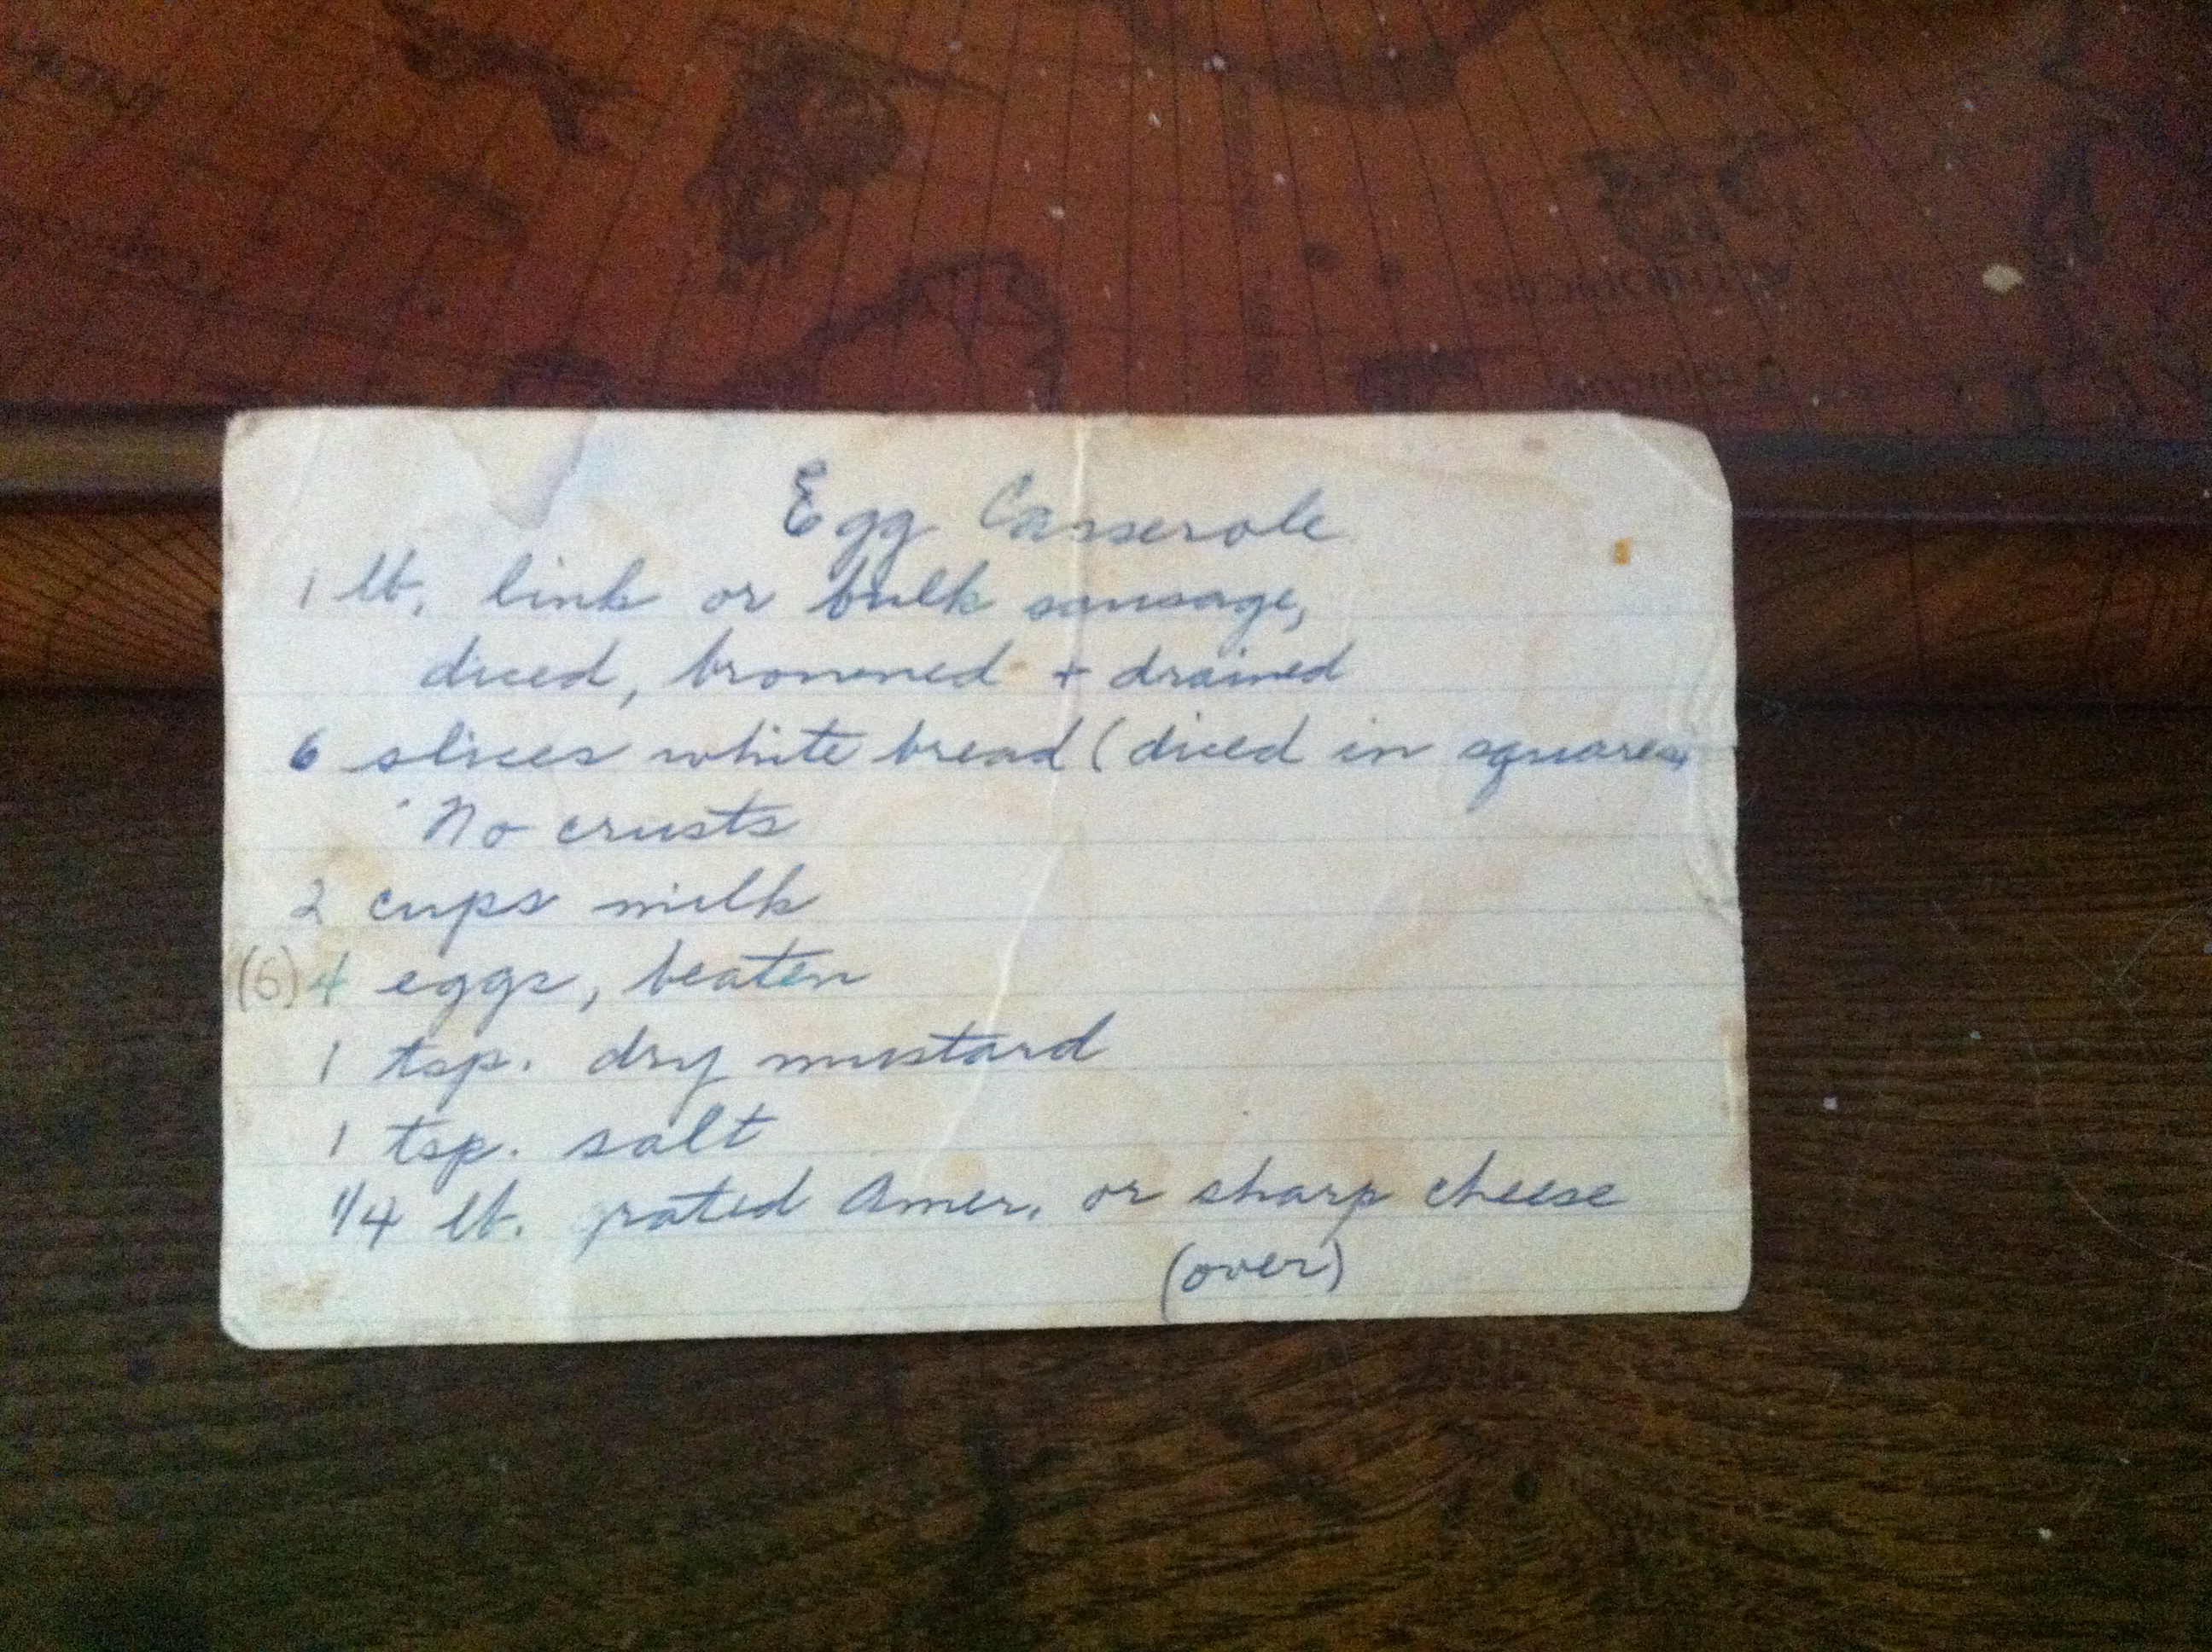 Egg Casserole
1 lb. link or bulk sausage,
diced, browned + drained
6 slices white bread (diced in squares)
No crusts
2 cups milk
(6) 4 eggs, beaten
1 tsp. dry mustard
1 tsp. salt
1/4 lb. grated Amer. or sharp cheese
(over)